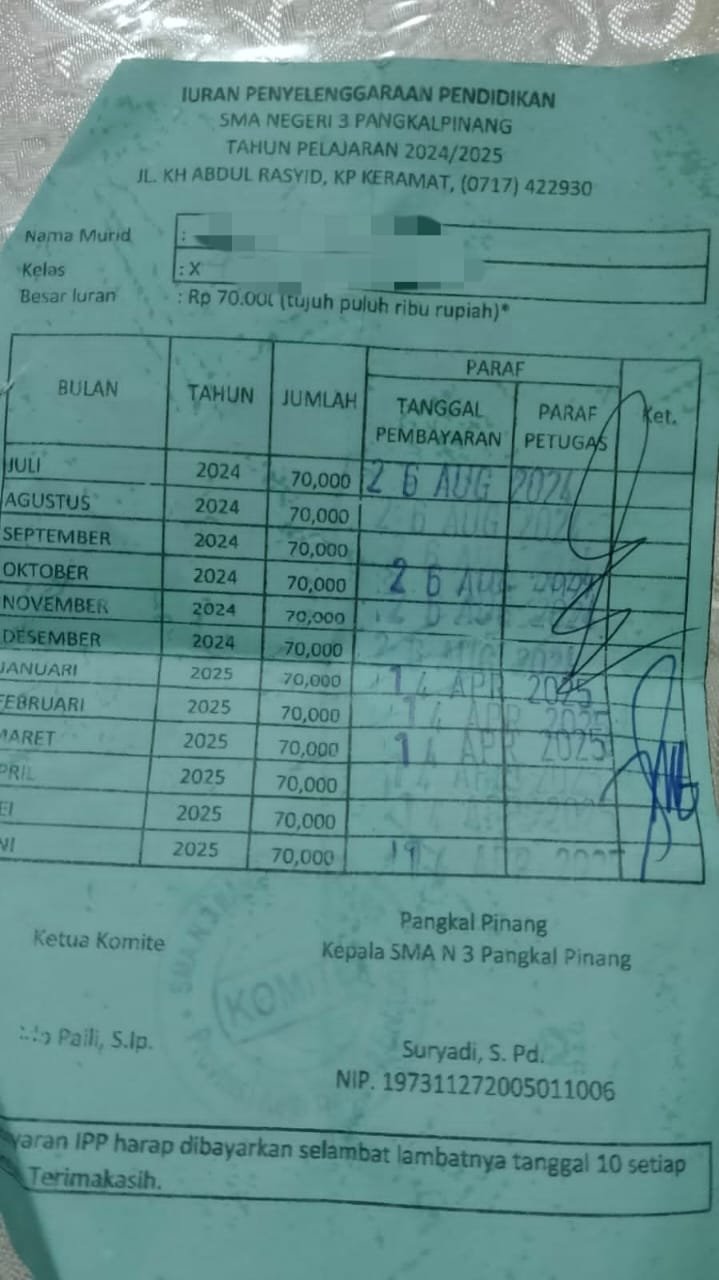 IURAN PENYELENGGARAAN PENDIDIKAN
SMA NEGERI 3 PANGKALPINANG
TAHUN PELAJARAN 2024/2025
JL. KH ABDUL RASYID, KP KERAMAT, (0717) 422930
Nama Murid :
Kelas : X
Besar Iuran : Rp 70.00 (tujuh puluh ribu rupiah)*
BULAN TAHUN JUMLAH PARAF Ket.
TANGGAL PEMBAYARAN PARAF PETUGAS
JULI 2024 70,000 26 AUG 2024
AGUSTUS 2024 70,000 26 AUG 2024
SEPTEMBER 2024 70,000
OKTOBER 2024 70,000 26 AUG 2024
NOVEMBER 2024 70,000 26 AUG 2024
DESEMBER 2024 70,000 26 AUG 2024
JANUARI 2025 70,000 14 APR 2025
FEBRUARI 2025 70,000 14 APR 2025
MARET 2025 70,000 14 APR 2025
PRIL 2025 70,000 14 APR 2025
EI 2025 70,000 14 APR 2025
NI 2025 70,000
Ketua Komite
Pangkal Pinang
Kepala SMA N 3 Pangkal Pinang
SMA N 3
KOMITE
Paili, S.Ip.
Suryadi, S. Pd.
NIP. 197311272005011006
yaran IPP harap dibayarkan selambat lambatnya tanggal 10 setiap
Terimakasih.